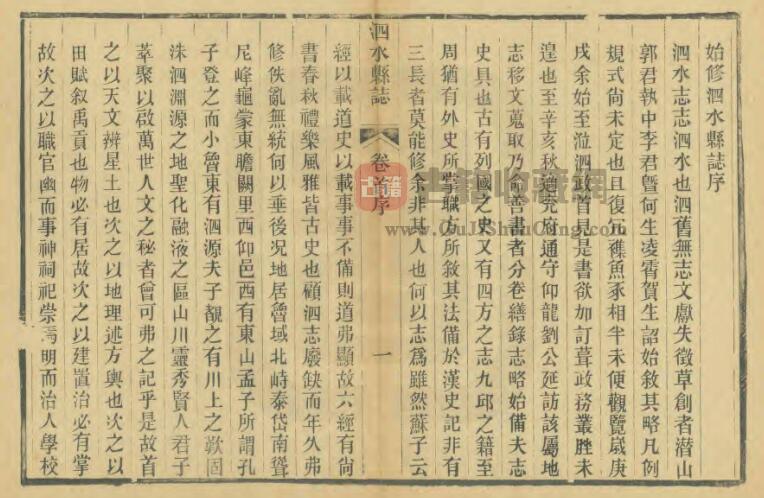 始修泗水縣誌序
泗水志志泗水也泗舊無志文獻失徵草創者潛山
郭君執中李君曁何生凌霄賀生詔始敘其略凡例
規式尚未定也且復亢襍魚豕相半未便觀覽嵗庚
戌余始至涖泗政首見是書欲加訂葺政務叢脞未
遑也至辛亥秋適兖府通守仰龍劉公延訪該屬地
志移文蒐取乃命善書者分卷繕錄志略始備夫志
史具也古有列國之史又有四方之志九邱之籍至
周猶有外史所掌職方所敘其法備於漢史記非有
三長者莫能修余非其人也何以志爲雖然蘇子云
泗水縣誌
卷 序
一
經以載道史以載事事不備則道弗顯故六經有尚
書春秋禮樂風雅皆古史也顧泗志廢缺而年久弗
修佚亂無統何以垂後况地居魯域北峙泰岱南聳
尼峰龜蒙東瞻闕里西仰邑西有東山孟子所謂孔
子登之而小魯東有泗源夫子觀之有川上之歎固
洙泗淵源之地聖化融液之區山川靈秀賢人君子
萃聚以啟萬世人文之秘者曾可弗之記乎是故首
之以天文辨星土也次之以地理述方輿也次之以
田賦叙禹貢也物必有居故次之以建置治必有掌
故次之以職官幽而事神祠祀崇焉明而治人學校
古籍
古籍收藏網
www.GuJiShuCang.com